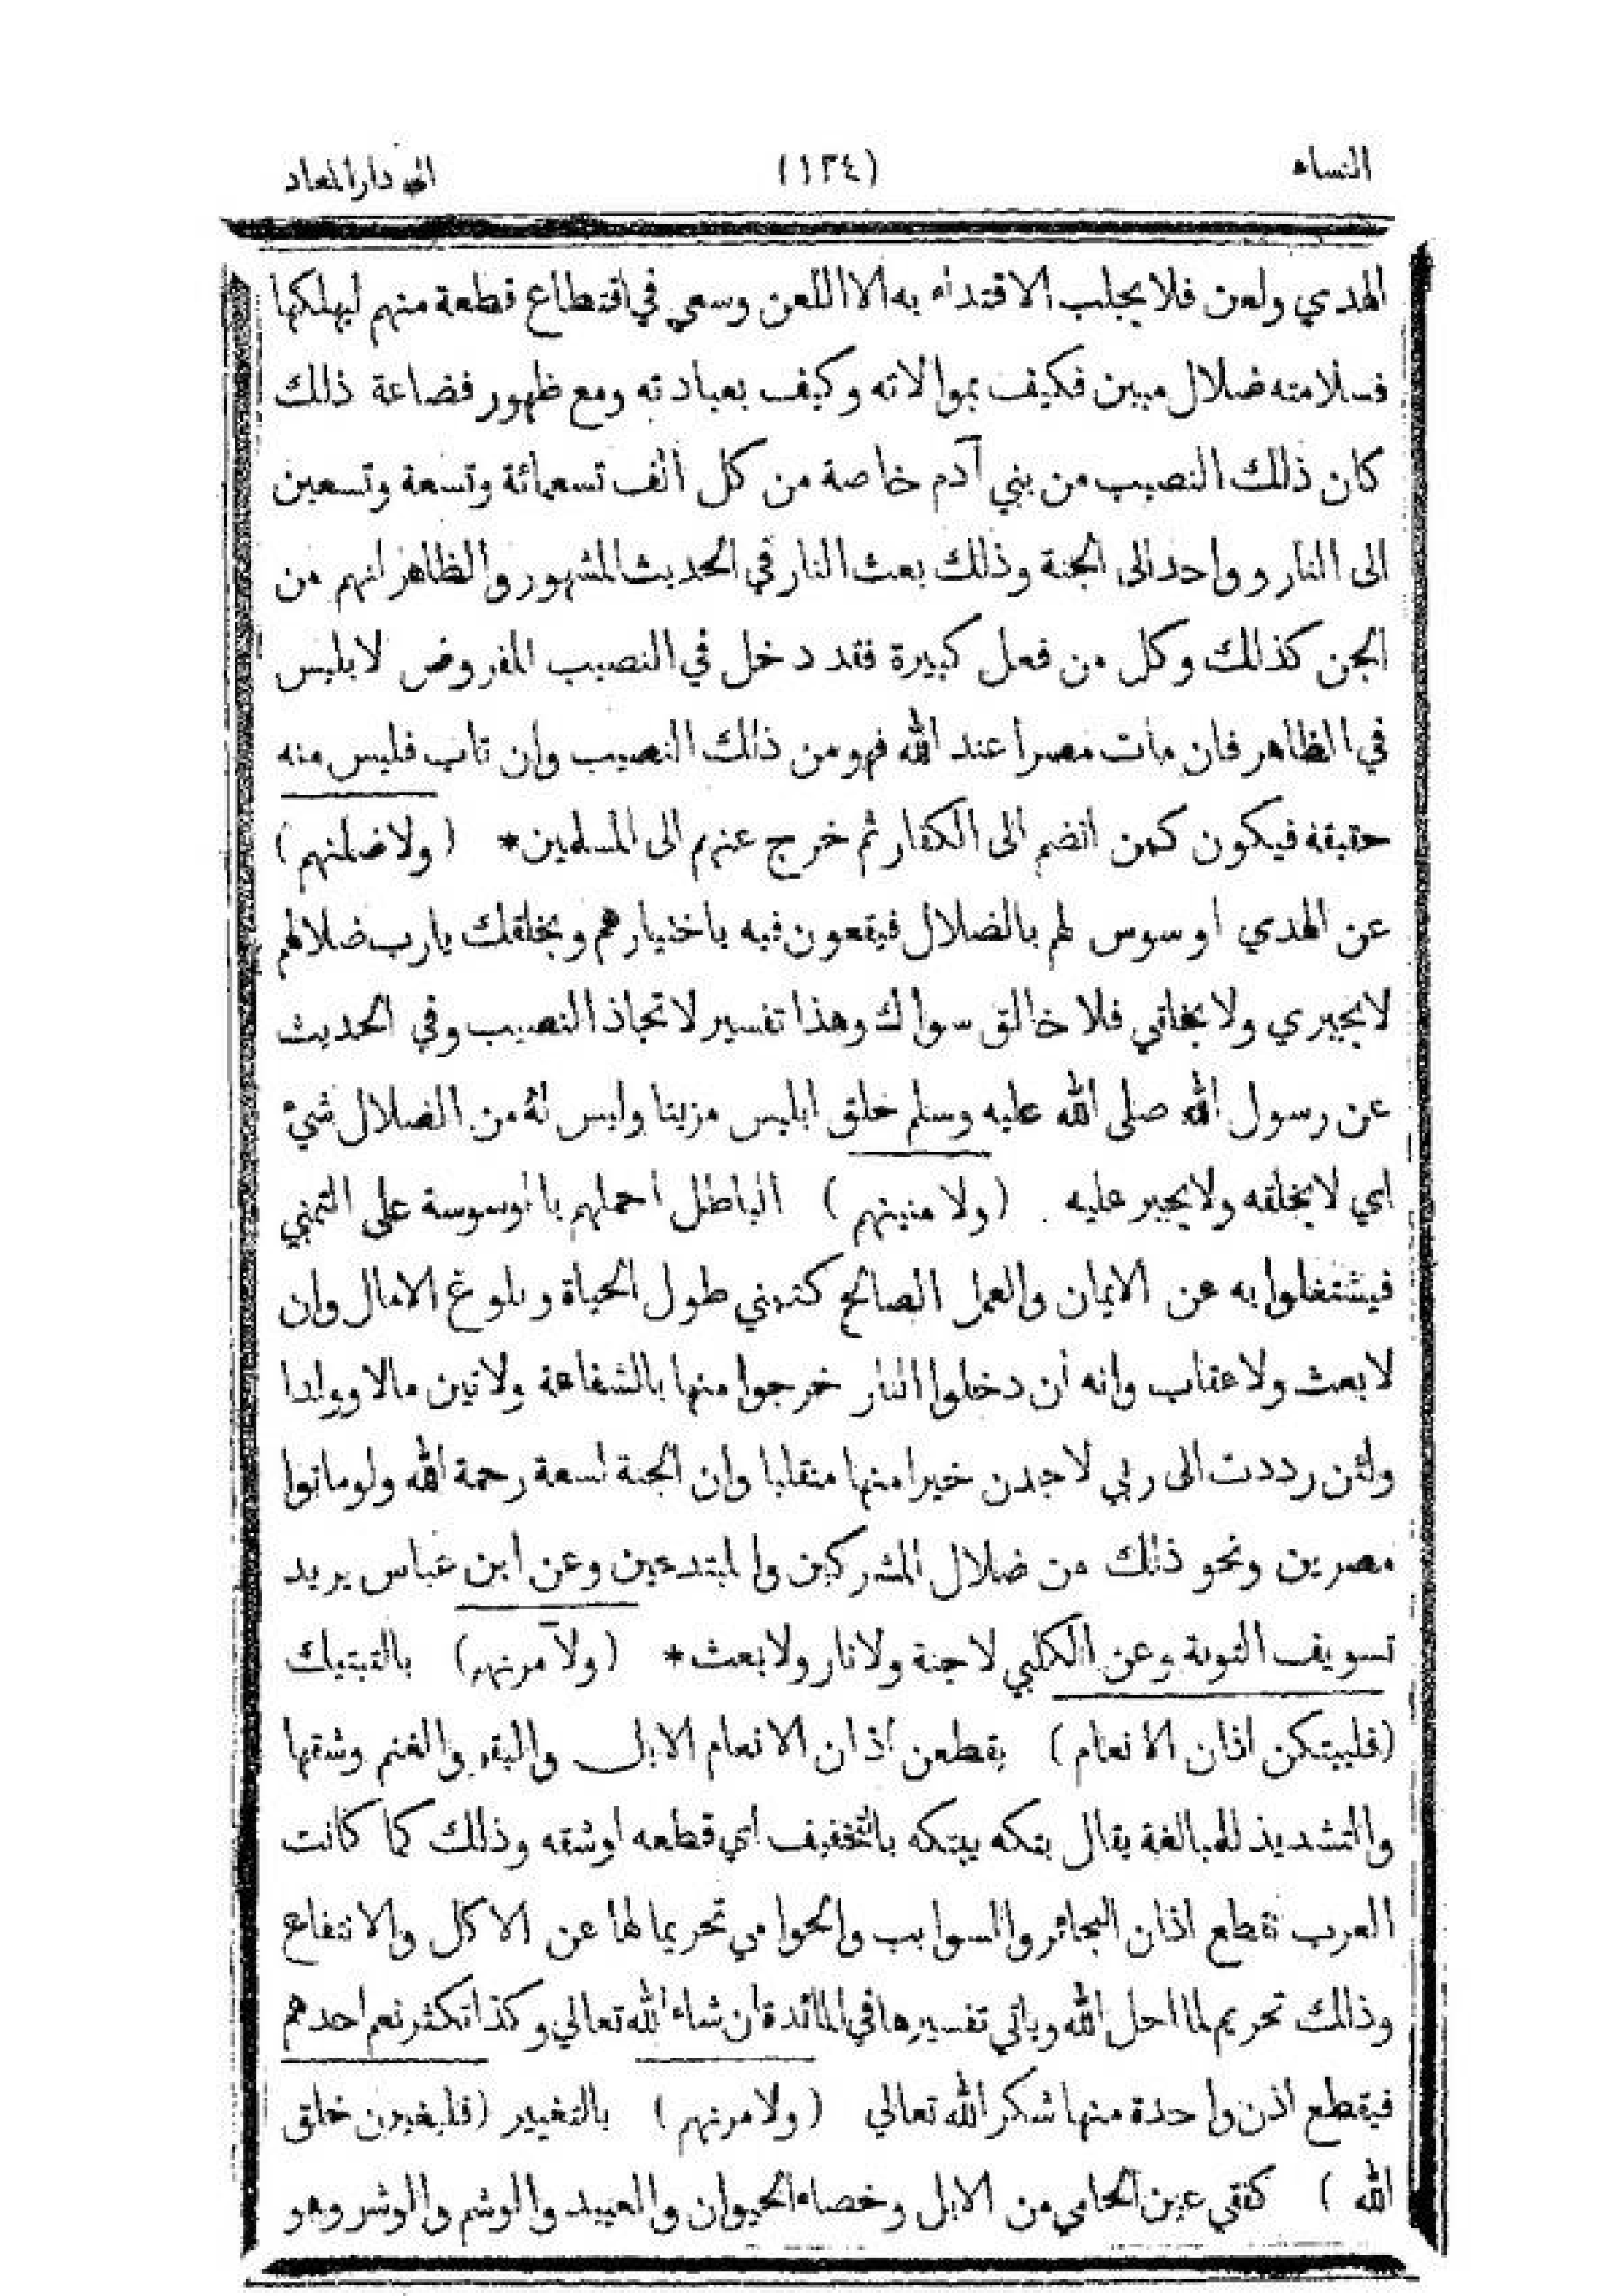 النساء (١٣٤) الى دار المعاد
الهدي ولعن فلا يجلب الاقتداء به الا اللعن وسعي في اقتطاع قطعة منهم ليهلكها
فسلامته ضلال مبين فكيف بموالاته وكيف بعبادته ومع ظهور فضاعة ذلك
كان ذلك النصيب من بني آدم خاصة من كل ألف تسعمائة وتسعة وتسعين
الى النار وواحد الى الجنة وذلك بعث النار في الحديث المشهور والظاهر انهم من
الجن كذلك وكل من فعل كبيرة فقد دخل في النصيب المفروض لابليس
في الظاهر فان مات مصرا عند الله فهو من ذلك النصيب وان تاب فليس منه
حقيقة فيكون كمن انضم الى الكفار ثم خرج عنهم الى المسلمين* (ولاضلنهم)
عن الهدي اوسوس لهم بالضلال فيقعون فيه باختيارهم وبخلقك يارب ضلالهم
لا بجبري ولا بخلقي فلا خالق سواك وهذا تفسير لاتخاذ النصيب وفي الحديث
عن رسول الله صلى الله عليه وسلم خلق ابليس مزينا وليس له من الضلال شيء
اي لا يخلقه ولا يجبر عليه (ولامنينهم) الباطل احملهم بالوسوسة على التمني
فيشتغلوا به عن الايمان والعمل الصالح كتمني طول الحياة وبلوغ الامال وان
لا بعث ولا عقاب وانه ان دخلوا النار خرجوا منها بالشفاعة ولاتين مالا وولدا
ولئن رددت الى ربي لاجدن خيرا منها منقلبا وان الجنة لسعة رحمة الله ولو ماتوا
مصرين ونحو ذلك من ضلال المشركين والمبتدعين وعن ابن عباس يريد
تسويف التوبة وعن الكلبي لا جنة ولا نار ولا بعث* (ولآمرنهم) بالتبتيك
(فليبتكن اذان الانعام) يقطعن اذان الانعام الابل والبقر والغنم وشقها
والتشديد للمبالغة يقال بتكه يبتكه بالتخفيف اي قطعه اوشقه وذلك كما كانت
العرب تقطع اذان البحائر والسوايب والحوامي تحريما لها عن الاكل والانتفاع
وذلك تحريم لما احل الله وياتي تفسيرها في المائدة ان شاء الله تعالي وكذا تكثر نعم احدهم
فيقطع اذن واحدة منها شكر الله تعالي (ولامرنهم) بالتغيير (فليغيرن خلق
الله) كفقي عين الحامي من الابل وخصاء الحيوان والعبيد والوشم والوشر وهو